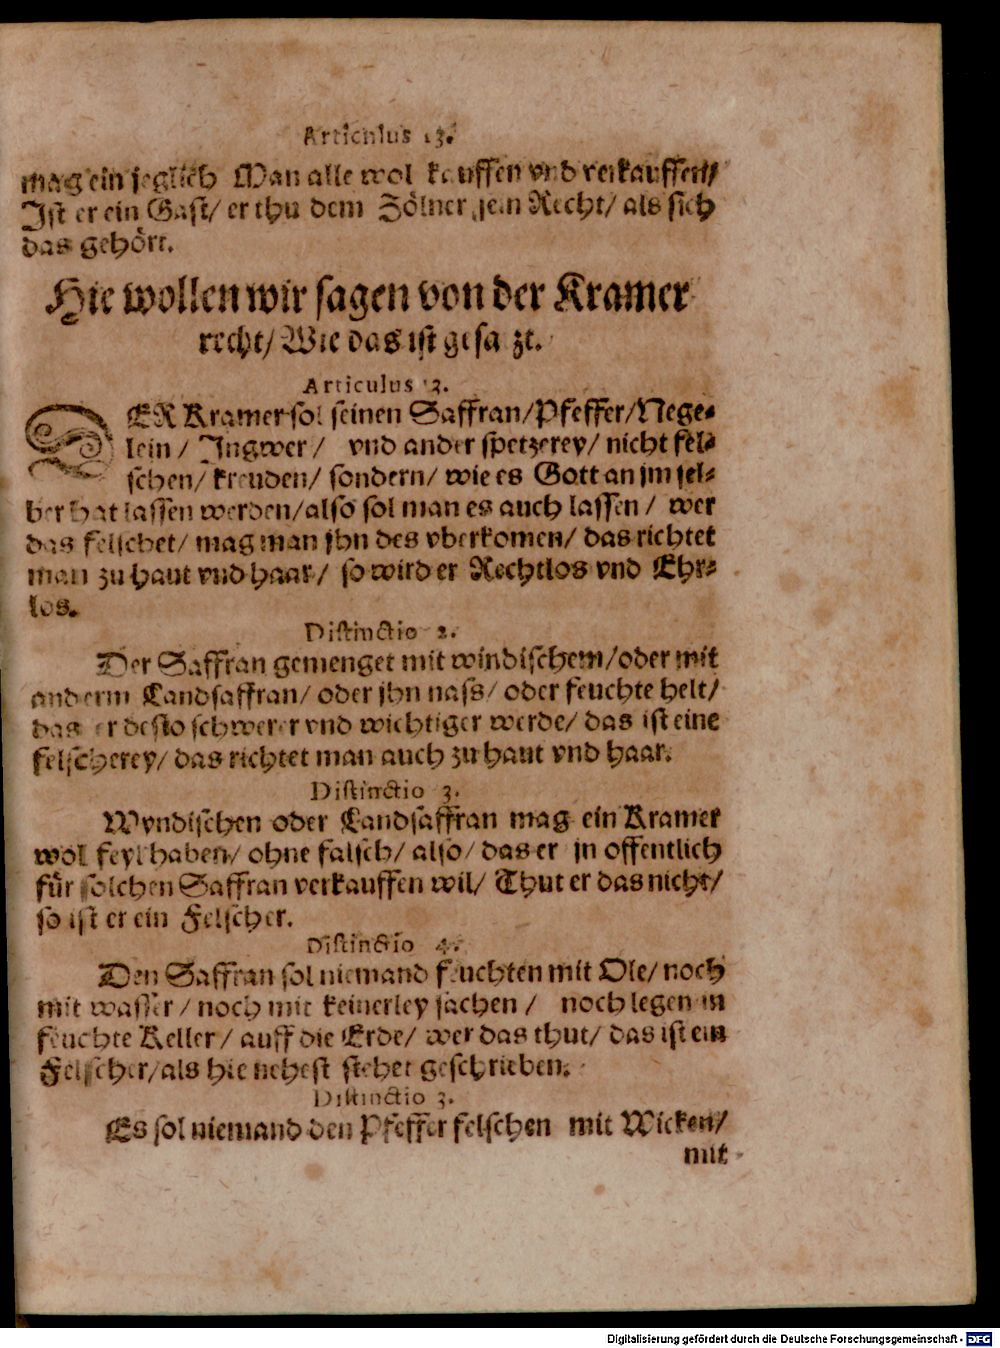 Articulus 13.
mag ein jeglich Man alle wol kauffen vnd verkauffen/
Ist er ein Gast/ er thu dem Zölner sein Recht/ als sich
das gehört.
Hie wollen wir sagen von der Kramer
recht/ Wie das ist gesazt.
Articulus 3.
DER Kramer sol seinen Saffran/Pfeffer/Nege-
lein/ Ingwer/ vnd ander spetzerey/ nicht fel-
schen/ kreuden/ sondern/ wie es Gott an jm sel-
ber hat lassen werden/also sol man es auch lassen/ wer
das felschet/ mag man jhn des vberkomen/ das richtet
man zu haut vnd haar/ so wird er Rechtlos vnd Ehr-
los.
Distinctio 2.
Der Saffran gemenget mit windischem/oder mit
anderm Landsaffran/ oder jhn nass/ oder feuchte helt/
das er desto schwerer vnd wichtiger werde/ das ist eine
felscherey/ das richtet man auch zu haut vnd haar.
Distinctio 3.
Wyndischen oder Landsaffran mag ein Kramer
wol feyl haben/ ohne falsch/ also/ das er jn offentlich
für solchen Saffran verkauffen wil/ Thut er das nicht/
so ist er ein Felscher.
Distinctio 4.
Den Saffran sol niemand feuchten mit Ole/ noch
mit wasser/ noch mit keinerley sachen/ noch legen in
feuchte Keller/ auff die Erde/ wer das thut/ das ist ein
Felscher/als hie nehest stehet geschrieben.
Distinctio 3.
Es sol niemand den Pfeffer felschen mit Wicken/
mit
Digitalisierung gefördert durch die Deutsche Forschungsgemeinschaft - DFG